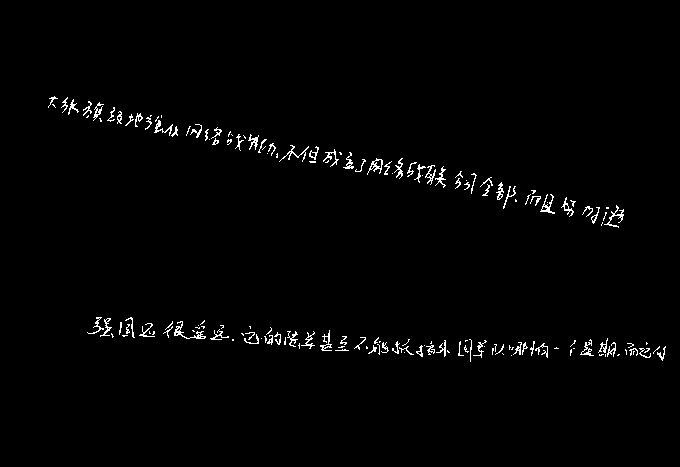 大张旗鼓地强化网络战能力,不但成立了网络战联合司令部,而且努力谋
强国还很遥远.它的陆军甚至不能抵抗外国军队哪怕一个星期.而它的